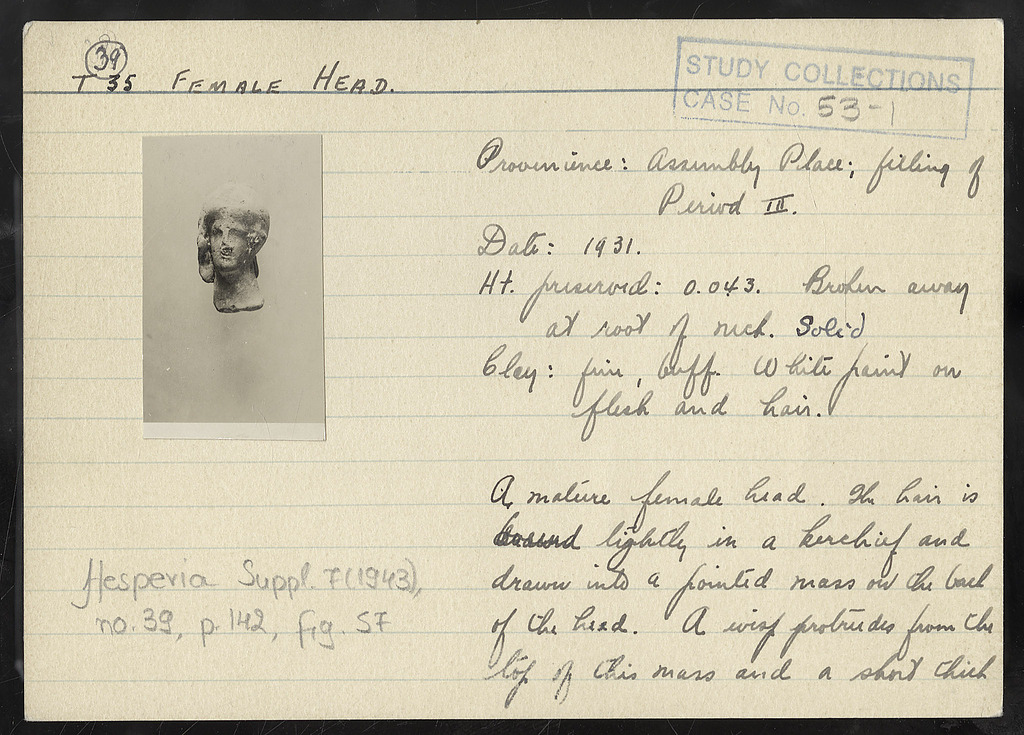 39
T 35 FEMALE HEAD.
STUDY COLLECTIONS
CASE No. 53-1
Provenience: Assembly Place; filling of
Period III.
Date: 1931.
Ht. preserved: 0.043. Broken away
at root of neck. Solid
Clay: fine, buff. White paint on
flesh and hair.
A mature female head. The hair is
bound lightly in a kerchief and
drawn into a pointed mass on the back
of the head. A wisp protrudes from the
top of this mass and a short thick
Hesperia Suppl. 7 (1943),
no. 39, p. 142, fig. 57